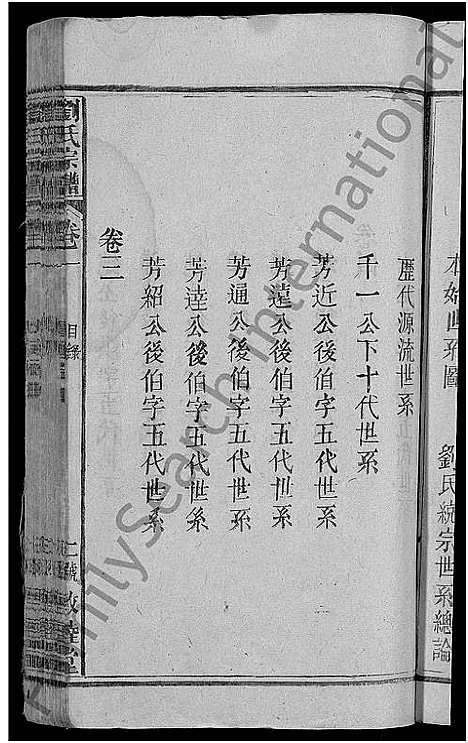 本始世系圖 劉氏統宗世系總論
歷代源流世系
千一公下十代世系
芳近公後伯字五代世系
芳遠公後伯字五代世系
芳通公後伯字五代世系
芳達公後伯字五代世系
芳紹公後伯字五代世系
卷三
劉氏宗譜 卷一 目錄 二號
FamilySearch International